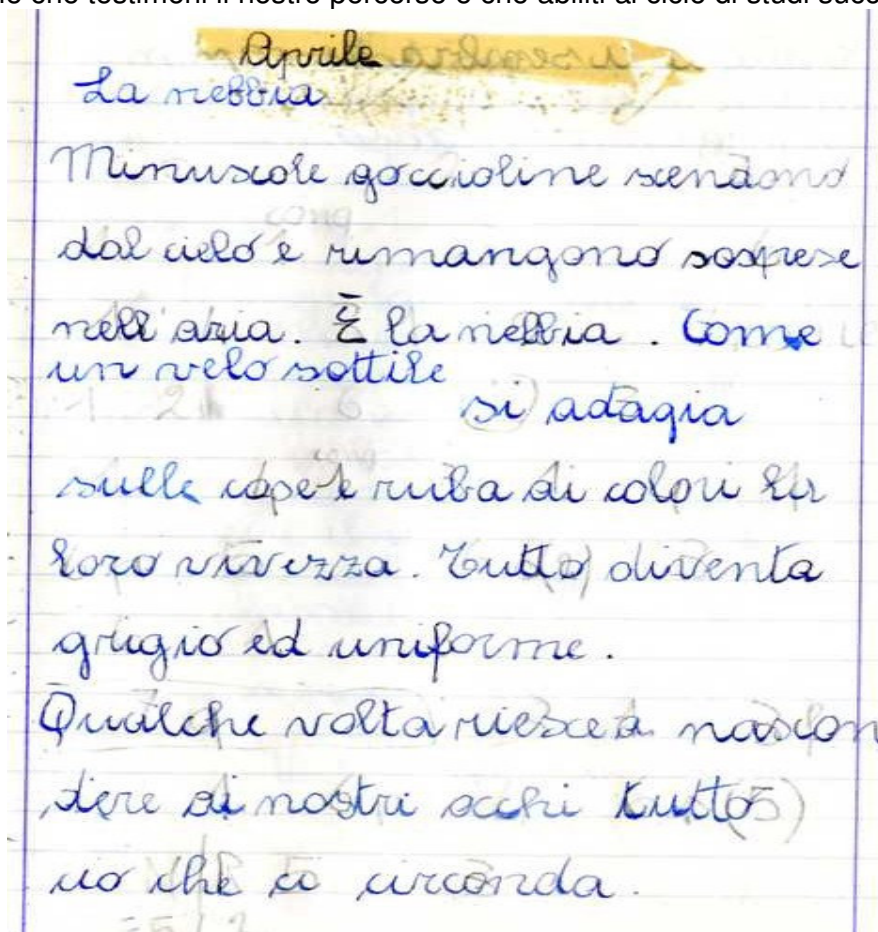 che testimoni il nostro percorso e che abiliti al ciclo di studi
Aprile
La nebbia
Minuscole goccioline scendono
dal cielo e rimangono sospese
nell'aria. È la nebbia. Come
un velo sottile
si adagia
sulle cose e ruba ai colori la
loro vivezza. Tutto diventa
grigio ed uniforme.
Qualche volta riesce a nascon
dere ai nostri occhi tutto
ciò che ci circonda.